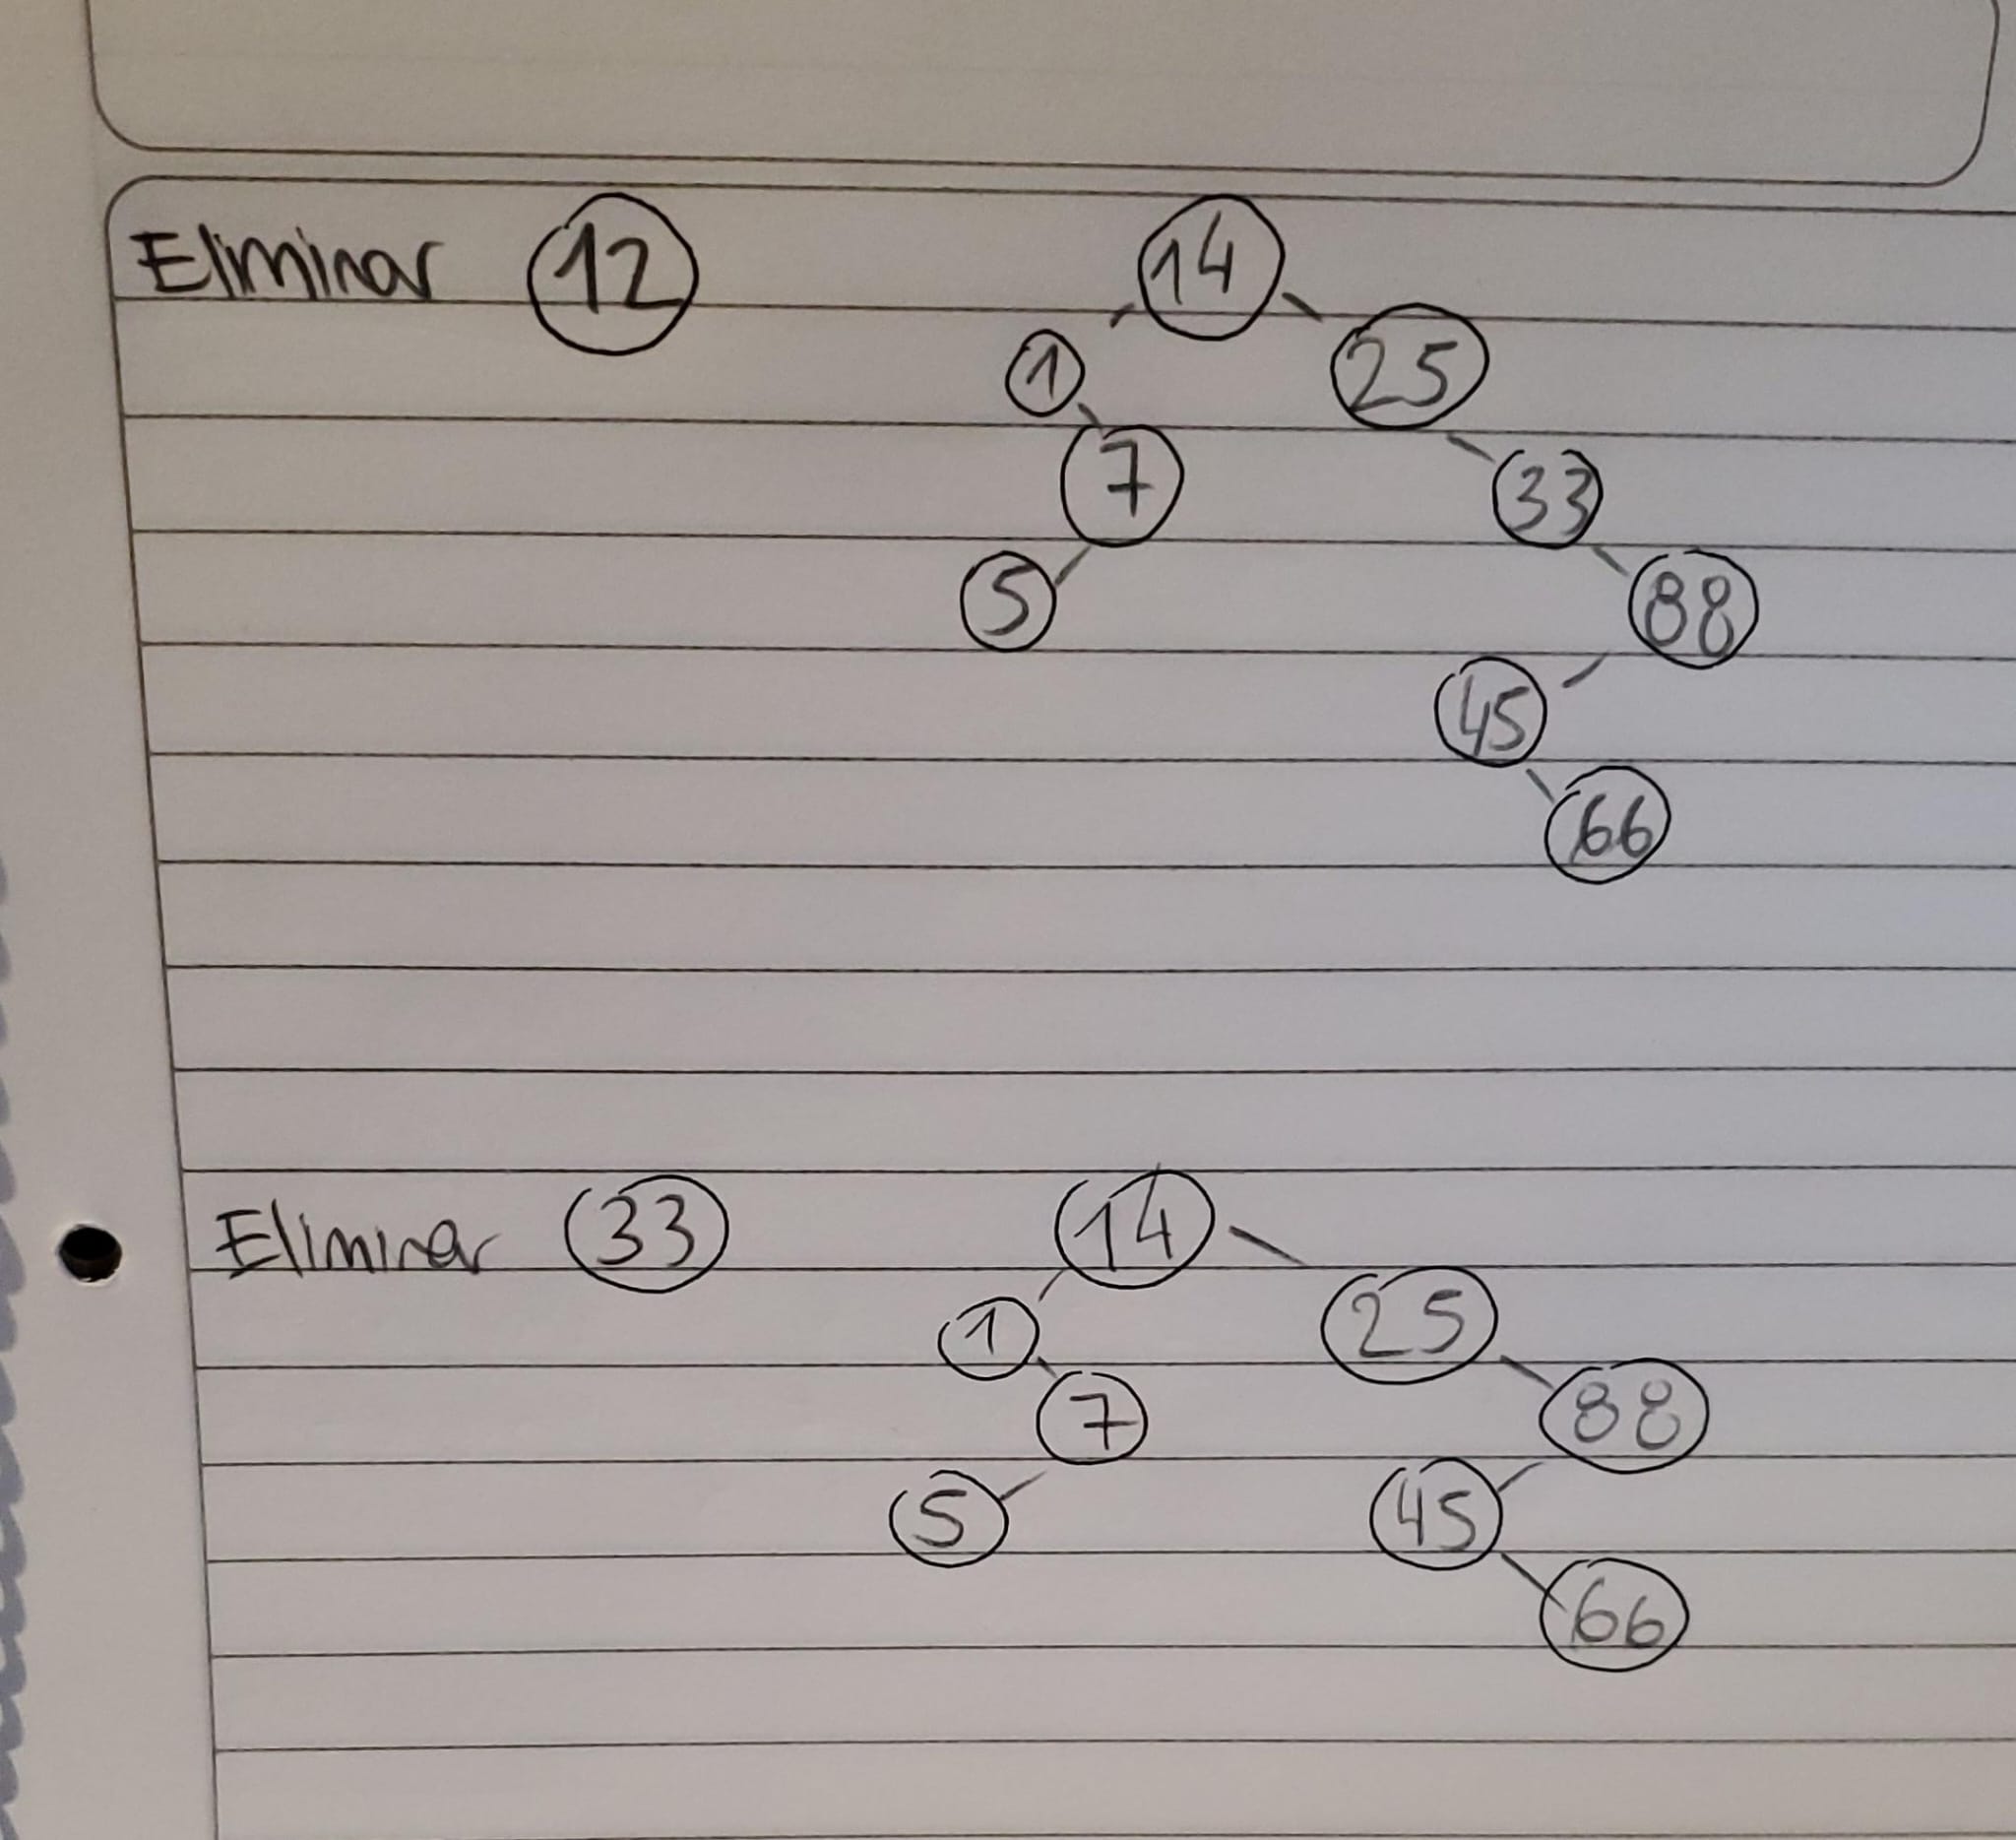 Eliminar 12 14
1 25
7 33
5 88
45
66
Eliminar 33 14
1 25
7 88
5 45
66